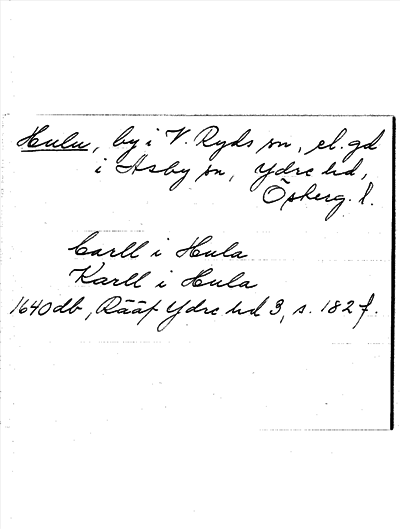 Hulu, by i V. Ryds sn, el. gd
i Asby sn, Ydre hd,
Österg. l.
Carll i Hula
Karll i Hula
1640 db, Rääf Ydre hd 3, s. 182 f.